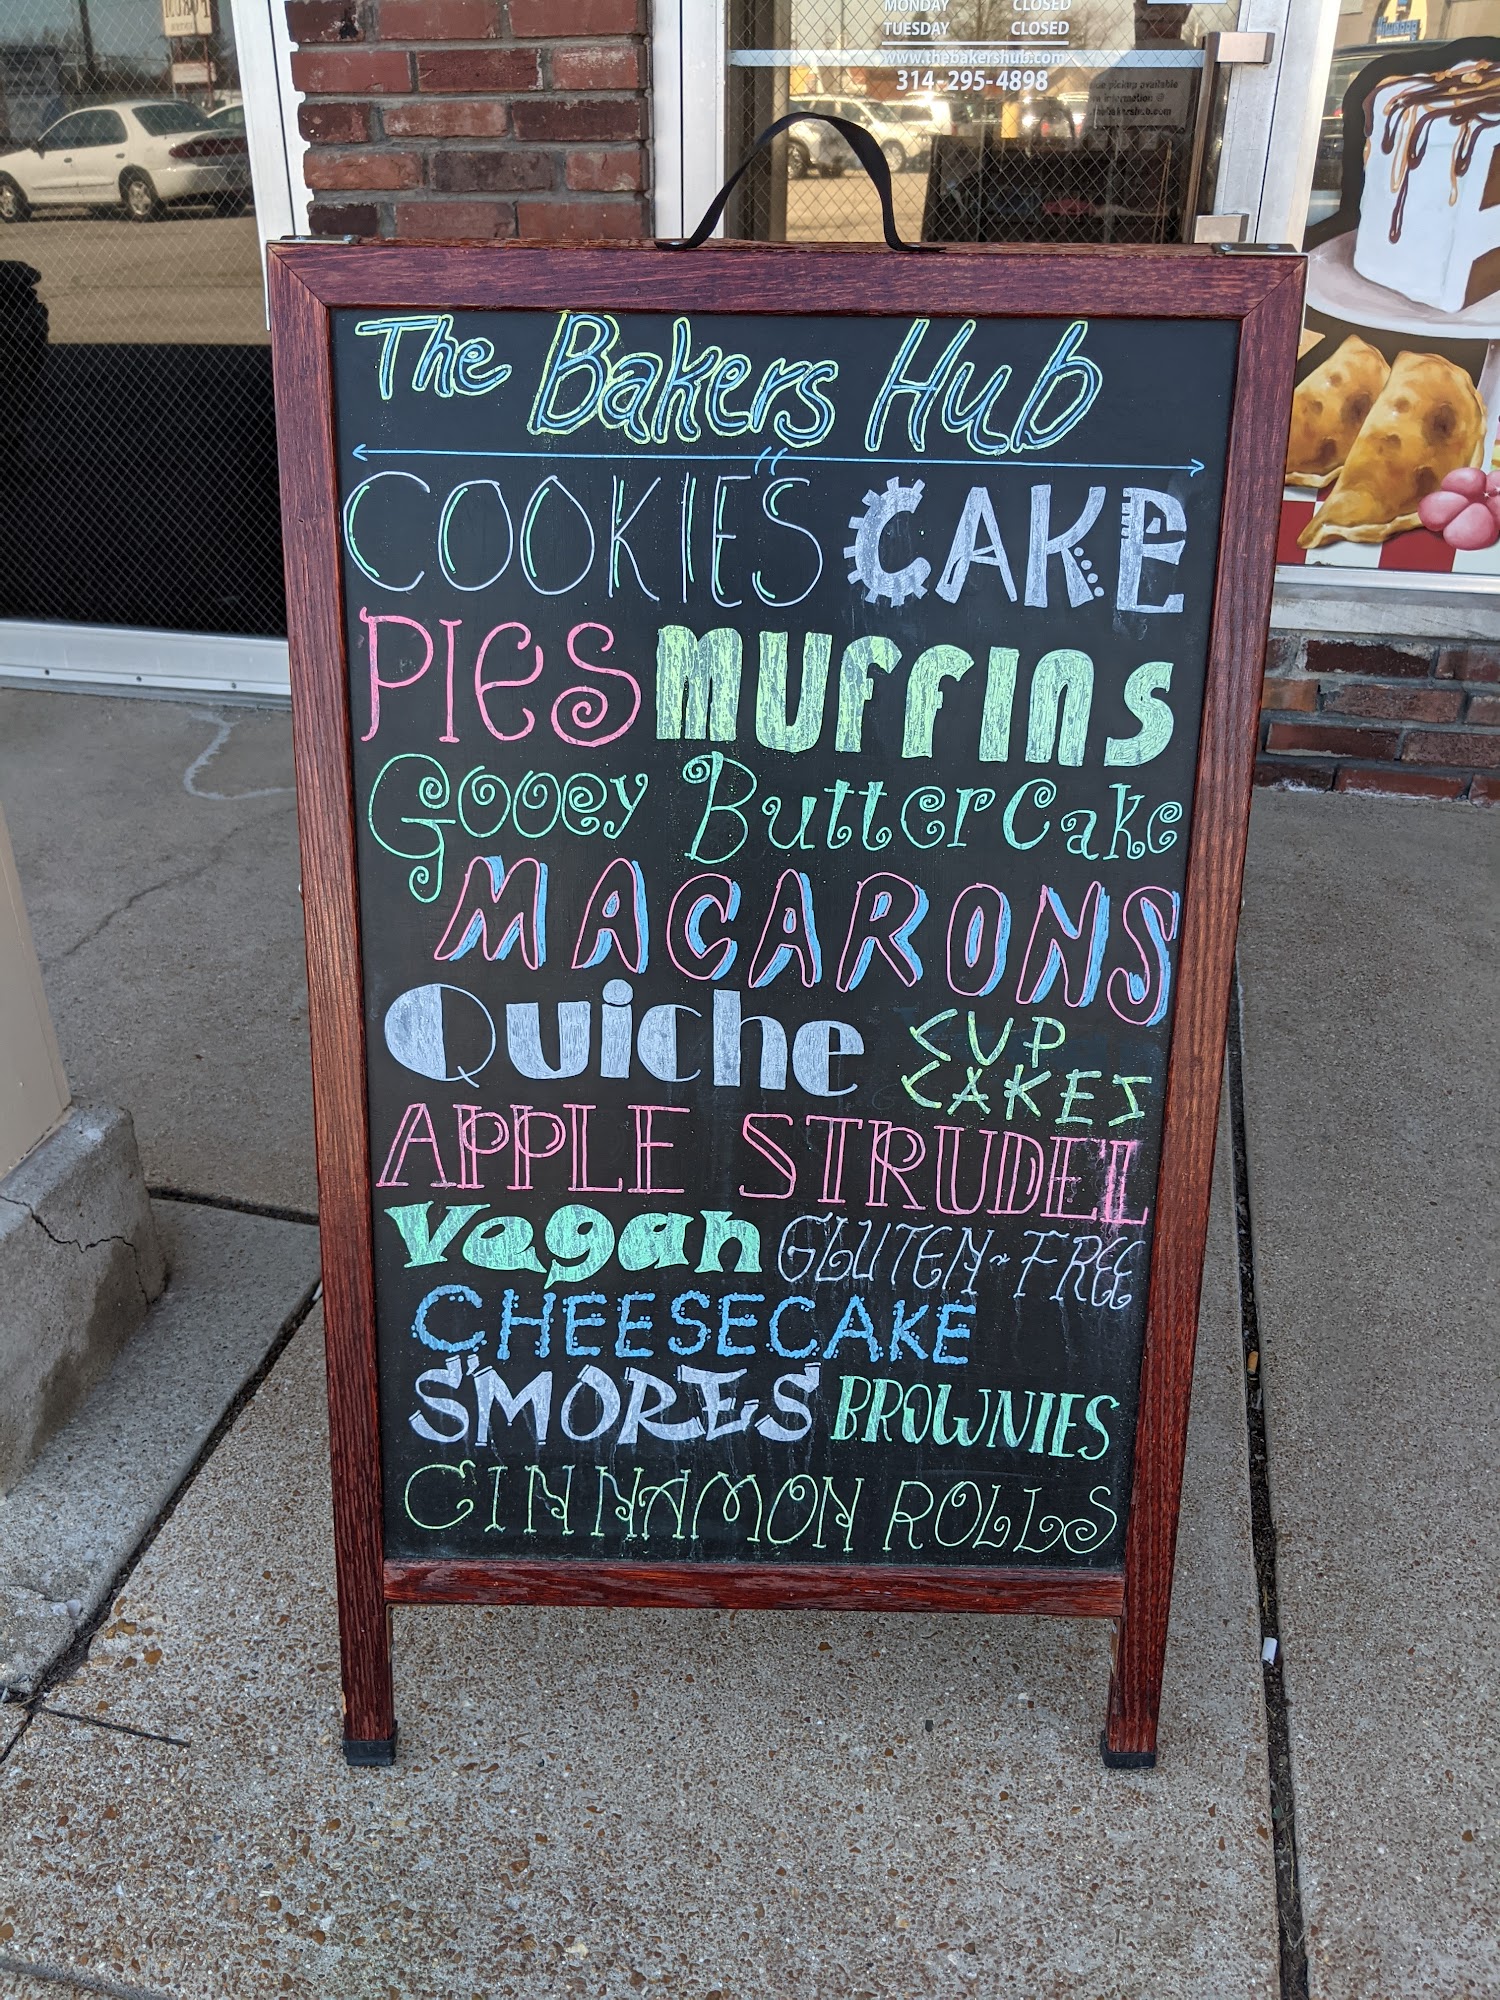 MONDAY CLOSED
TUESDAY CLOSED
www.thebakershub.com
314-295-4898
pickup available
information @
thebakershub.com
The Bakers Hub
COOKIE'S CAKE
PIES MUFFINS
Gooey Butter Cake
MACARONS
Quiche CUP CAKES
APPLE STRUDEL
Vegan GLUTEN-FREE
CHEESECAKE
S'MORES BROWNIES
CINNAMON ROLLS